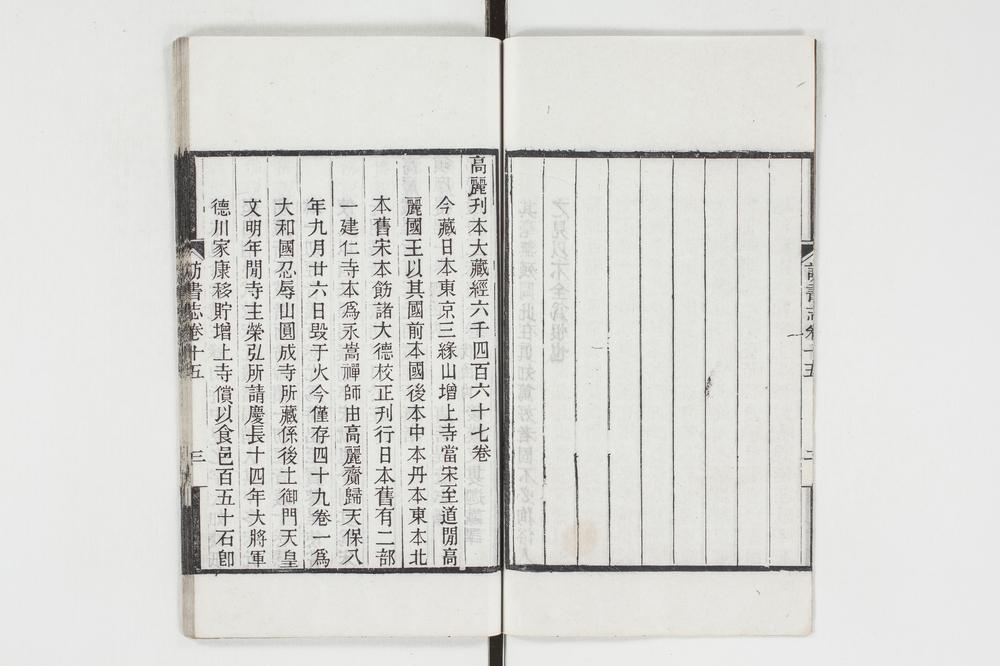 訪書志卷十五
二
高麗刊本大藏經六千四百六十七卷
今藏日本東京三緣山增上寺當宋至道閒高
麗國王以其國前本國後本中本丹本東本北
本舊宋本飭諸大德校正刋行日本舊有二部
一建仁寺本爲永嵩禪師由高麗齎歸天保八
年九月廿六日毀于火今僅存四十九卷一爲
大和國忍辱山圓成寺所藏係後土御門天皇
文明年閒寺主榮弘所請慶長十四年大將軍
德川家康移貯增上寺償以食邑百五十石卽
訪書志卷十五
三